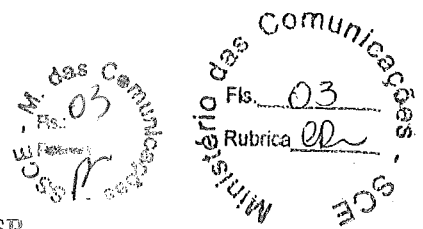 M. das Comunicações
Fls.: 03
SSCE
Ministério das Comunicações - SCE
Fls. 03
Rubrica
SP